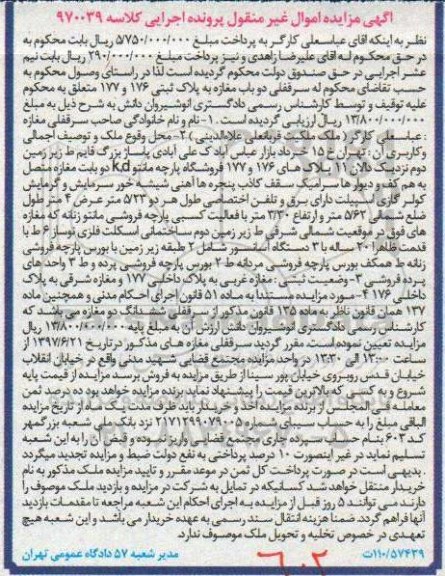 آگهی مزایده اموال غیر منقول پرونده اجرایی کلاسه ۹۷۰۰۳۹
نظر به اینکه آقای عباسعلی کارگر به پرداخت مبلغ ۵/۷۵۰/۰۰۰/۰۰۰ ریال بابت محکوم به
در حق محکوم له آقای علیرضا زاهدی و نیز پرداخت مبلغ ۲۹۰/۰۰۰/۰۰۰ ریال بابت نیم
عشر اجرایی در حق صندوق دولت محکوم گردیده است لذا در راستای وصول محکوم به
حسب تقاضای محکوم له سرقفلی دو باب مغازه به پلاک ثبتی ۱۷۶ و ۱۷۷ متعلق به محکوم
علیه توقیف و توسط کارشناس رسمی دادگستری انوشیروان دانش به شرح ذیل به مبلغ
۱۳/۸۰۰/۰۰۰/۰۰۰ ریال ارزیابی گردیده است. ۱- نام و نام خانوادگی صاحب سرقفلی
: عباسعلی کارگر (ملک ملکیت قربانعلی علاءالدینی) ۲- محل وقوع ملک و توصیف اجمالی
و کاربری آن : تهران ۱۵ خرداد بازار عباس آباد ک علی آبادی پاساژ بزرگ قایم ط زیر زمین
دوم نزدیک دالان ۱۱ پلاک های ۱۷۶ و ۱۷۷ فروشگاه پارچه مانتو k.d دو بابت مغازه متصل
به هم کف و دیوارها سرامیک سقف کاذب پنجره ها آهنی شیشه خور سرمایش و گرمایش
کولر گازی اسپیلت دارای برق و تلفن اختصاصی طول هر دو ۵/۲۳ متر عرض ۴ متر طول
ضلع شمالی ۵/۶۲ متر و ارتفاع ۳/۳۰ متر با فعالیت کسبی پارچه فروشی مانتو زنانه که مغازه
های فوق در موقعیت شمالی شرقی ط زیر زمین دوم ساختمانی اسکلت فلزی نوساز ۶ ط با
قدمت ظاهرا ۲۰ ساله با ۳ دستگاه آسانسور شامل ۲ طبقه زیر زمین با بورس پارچه فروشی
زنانه ط همکف بورس پارچه فروشی مردانه ط ۲ بورس پارچه فروشی پرده و ط ۳ واحد های
پرده فروشی ۳- وضعیت ثبتی : مغازه غربی به پلاک داخلی ۱۷۷ و مغازه شرقی به پلاک
داخلی ۱۷۶ ۴- مورد مزایده مستندا به ماده ۵۱ قانون اجرای احکام مدنی و همچنین ماده
۱۳۷ همان قانون ناظر به ماده ۱۳۵ قانون مذکور از سرقفلی ششدانگ دو مغازه می باشد که
کارشناس رسمی دادگستری انوشیروان دانش ارزش آن به مبلغ پایه ۱۳/۸۰۰/۰۰۰/۰۰۰ ریال
مزایده تعیین نموده است. مقرر گردید سرقفلی مغازه های مذکور در تاریخ ۱۳۹۷/۶/۲۱ از
ساعت ۱۳:۰۰ الی ۱۳:۳۰ در واحد مزایده مجتمع قضایی شهید مدنی واقع در خیابان انقلاب
خیابان قدس روبروی خیابان پور سینا از طریق مزایده به فروش برسد مزایده از قیمت پایه
شروع و به کسی که بالاترین قیمت را پیشنهاد نماید برنده مزایده خواهد بود ده درصد ثمن
معامله فی المجلس از برنده مزایده اخذ و خریدار باید ظرف مدت یک ماه از تاریخ مزایده
الباقی مبلغ را به حساب سیبای شماره نزد بانک ملی شعبه بزرگمهر
کد ۶۰۳ بنام حساب سپرده جاری مجتمع قضایی واریز نموده و قبض آن را به این شعبه
تسلیم نماید در غیر اینصورت ۱۰ درصد پرداختی به نفع دولت ضبط و مزایده تجدید میگردد
. بدیهی است در صورت پرداخت کل ثمن در موعد مقرر و تایید مزایده ملک مذکور به نام
خریدار منتقل خواهد شد کسانیکه در تمایل به شرکت در مزایده و بازدید ملک موصوف را
دارند می توانند ۵ روز قبل از مزایده به اجرای احکام این شعبه مراجعه تا مقدمات بازدید
آنها فراهم گردد. ضمنا هزینه انتقال سند رسمی به عهده خریدار می باشد و این شعبه هیچ
تعهدی در خصوص تخلیه و تحویل ملک موصوف ندارد.
۱۱۰/۵۷۴۳۹ت مدیر شعبه ۵۷ دادگاه عمومی تهران
۶۰۲